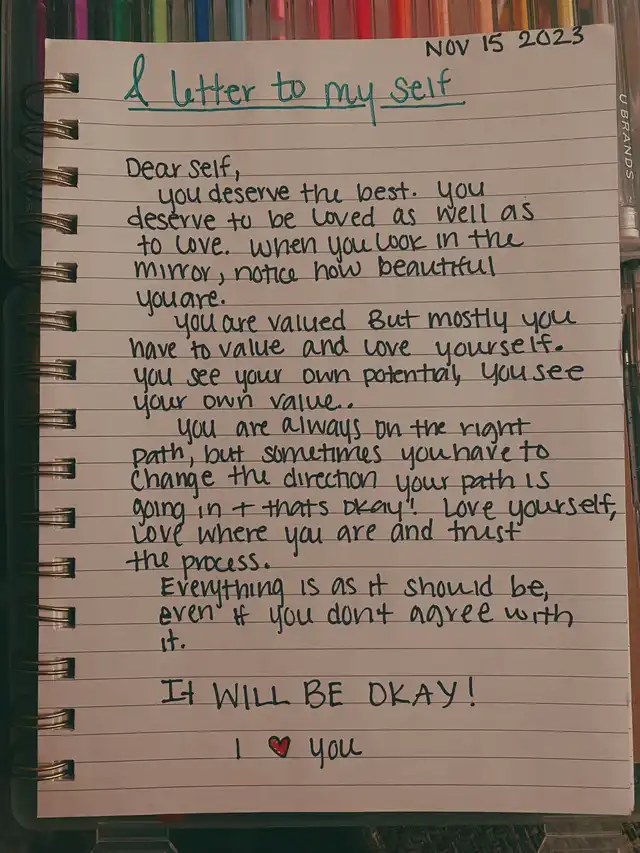 NOV 15 2023
A letter to my self
U BRANDS
Dear self,
you deserve the best. you
deserve to be loved as well as
to love. when you look in the
mirror, notice how beautiful
you are.
you are valued But mostly you
have to value and love yourself.
you see your own potential, you see
your own value..
you are always on the right
path, but sometimes you have to
change the direction your path is
going in + thats okay! Love yourself,
Love where you are and trust
the process.
Everything is as it should be,
even if you dont agree with
it.
It WILL BE OKAY!
I ❤ you